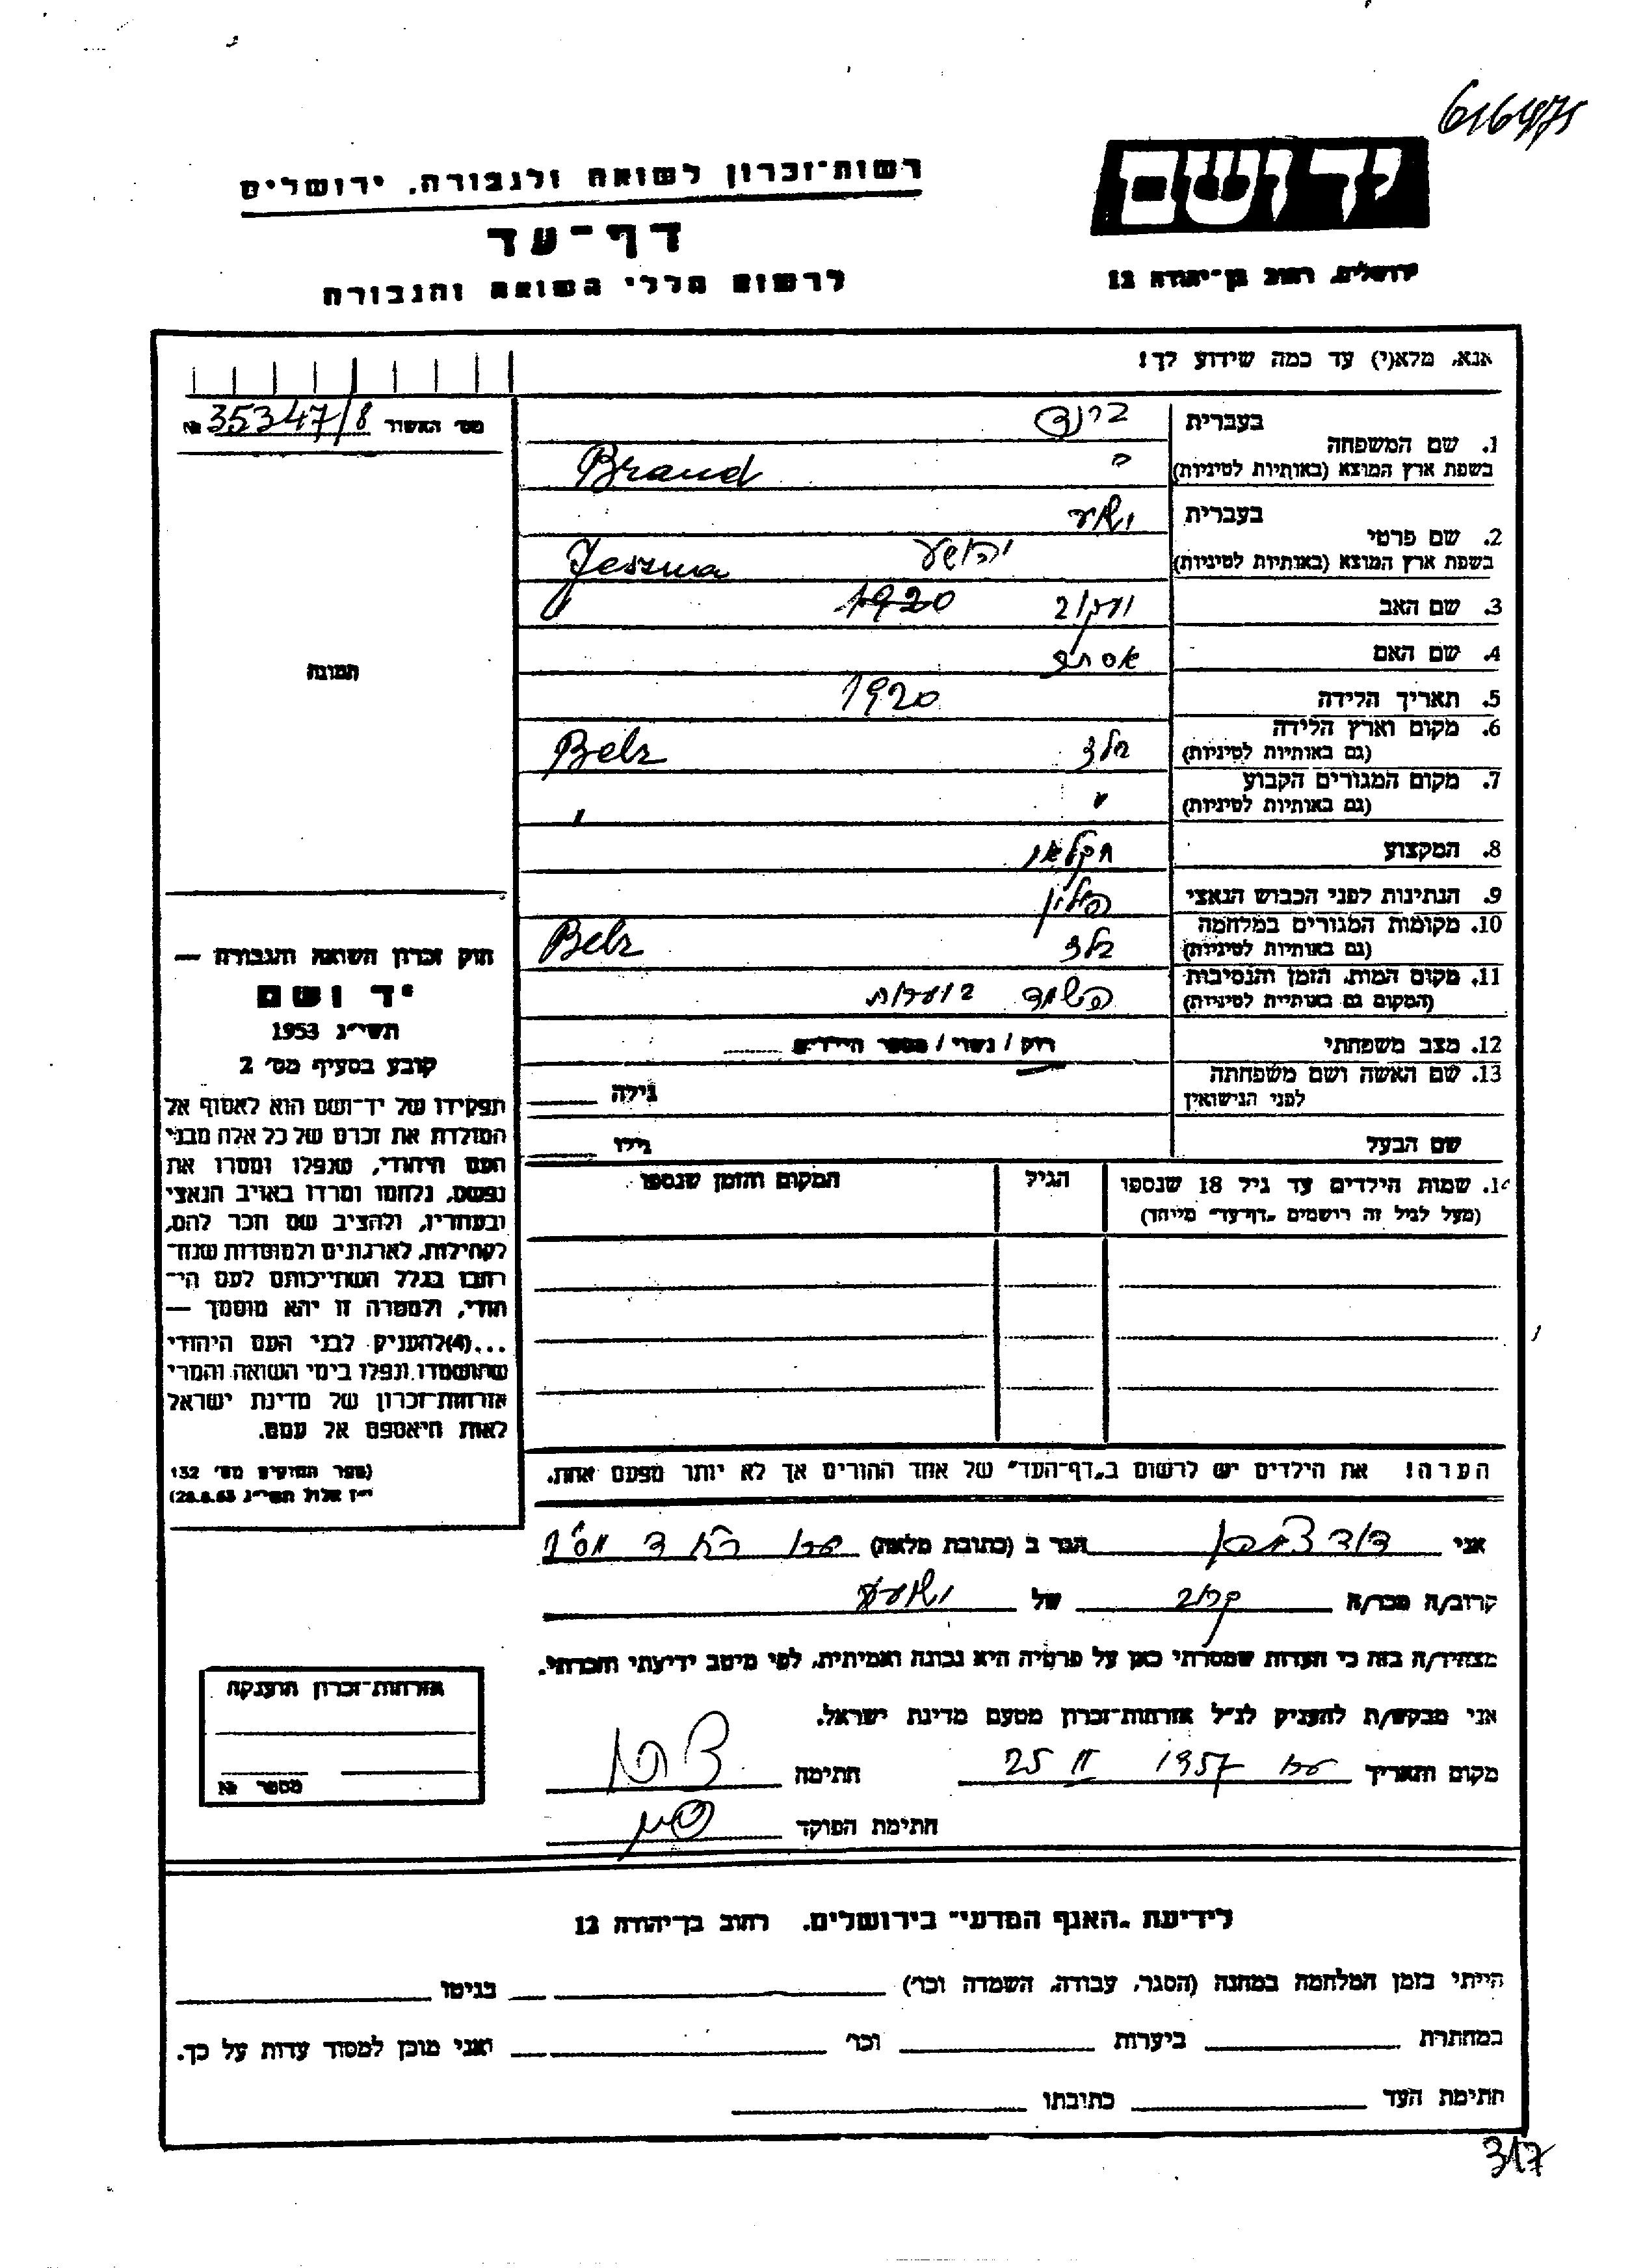 616475
יד ושם
ירושלים, רחוב בן־יהודה 12
רשות־זכרון לשואה ולגבורה, ירושלים
דף־עד
לרשום חללי השואה והגבורה
אנא, מלא(י) עד כמה שידוע לך!
מס׳ האשור 35347/8 №
תמונה
1. שם המשפחה בעברית ברנד
בשפת ארץ המוצא (באותיות לטיניות) Brand
2. שם פרטי בעברית
יהושע
בשפת ארץ המוצא (באותיות לטיניות) Jeszua
3. שם האב יעקב 1920
4. שם האם אסתר
5. תאריך הלידה 1920
6. מקום וארץ הלידה
(גם באותיות לטיניות) בלז Belz
7. מקום המגורים הקבוע
(גם באותיות לטיניות) " "
8. המקצוע חקלאי
9. הנתינות לפני הכבוש הנאצי פולין
10. מקומות המגורים במלחמה
(גם באותיות לטיניות) בלז Belz
11. מקום המות, הזמן והנסיבות
(המקום גם באותיות לטיניות) השמד
12. מצב משפחתי רווק / נשוי / מספר הילדים
13. שם האשה ושם משפחתה
לפני הנישואין גילה
שם הבעל גילו
14. שמות הילדים עד גיל 18 שנספו הגיל המקום והזמן שנספו
(מעל לגיל זה רושמים „דף־עד" מיוחד)
הערה! את הילדים יש לרשום ב„דף־העד" של אחד ההורים אך לא יותר מפעם אחת.
חוק זכרון השואה והגבורה —
יד ושם
תשי״ג 1953
קובע בסעיף מס׳ 2
תפקידו של יד־ושם הוא לאסוף אל
המולדת את זכרם של כל אלה מבני
העם היהודי, שנפלו ומסרו את
נפשם, נלחמו ומרדו באויב הנאצי
ובעוזריו, ולהציב שם וזכר להם,
לקהילות, לארגונים ולמוסדות שנח־
רבו בגלל השתייכותם לעם הי־
הודי, ולמטרה זו יהא מוסמך —
...(4)להעניק לבני העם היהודי
שהושמדו ונפלו בימי השואה והמרי
אזרחות־זכרון של מדינת ישראל
לאות היאספם אל עמם.
(ספר החוקים מס׳ 132
י״ז אלול תשי״ג 28.8.53)
אני דוד הגר ב (כתובת מלאה)
קרוב/ה מכר/ה קרוב של
מצהיר/ה בזה כי העדות שמסרתי כאן על פרטיה היא נכונה ואמיתית, לפי מיטב ידיעתי והכרתי.
אני מבקש/ת להעניק לנ״ל אזרחות־זכרון מטעם מדינת ישראל.
מקום ותאריך 25 II 1957 חתימה
חתימת הפוקד
אזרחות־זכרון הוענקה
מספר №
לידיעת „האגף המדעי" בירושלים, רחוב בן־יהודה 12
הייתי בזמן המלחמה במחנה (הסגר, עבודה, השמדה וכו׳) בגיטו
במחתרת ביערות וכו׳ ואני מוכן למסור עדות על כך.
חתימת העד כתובתו
317